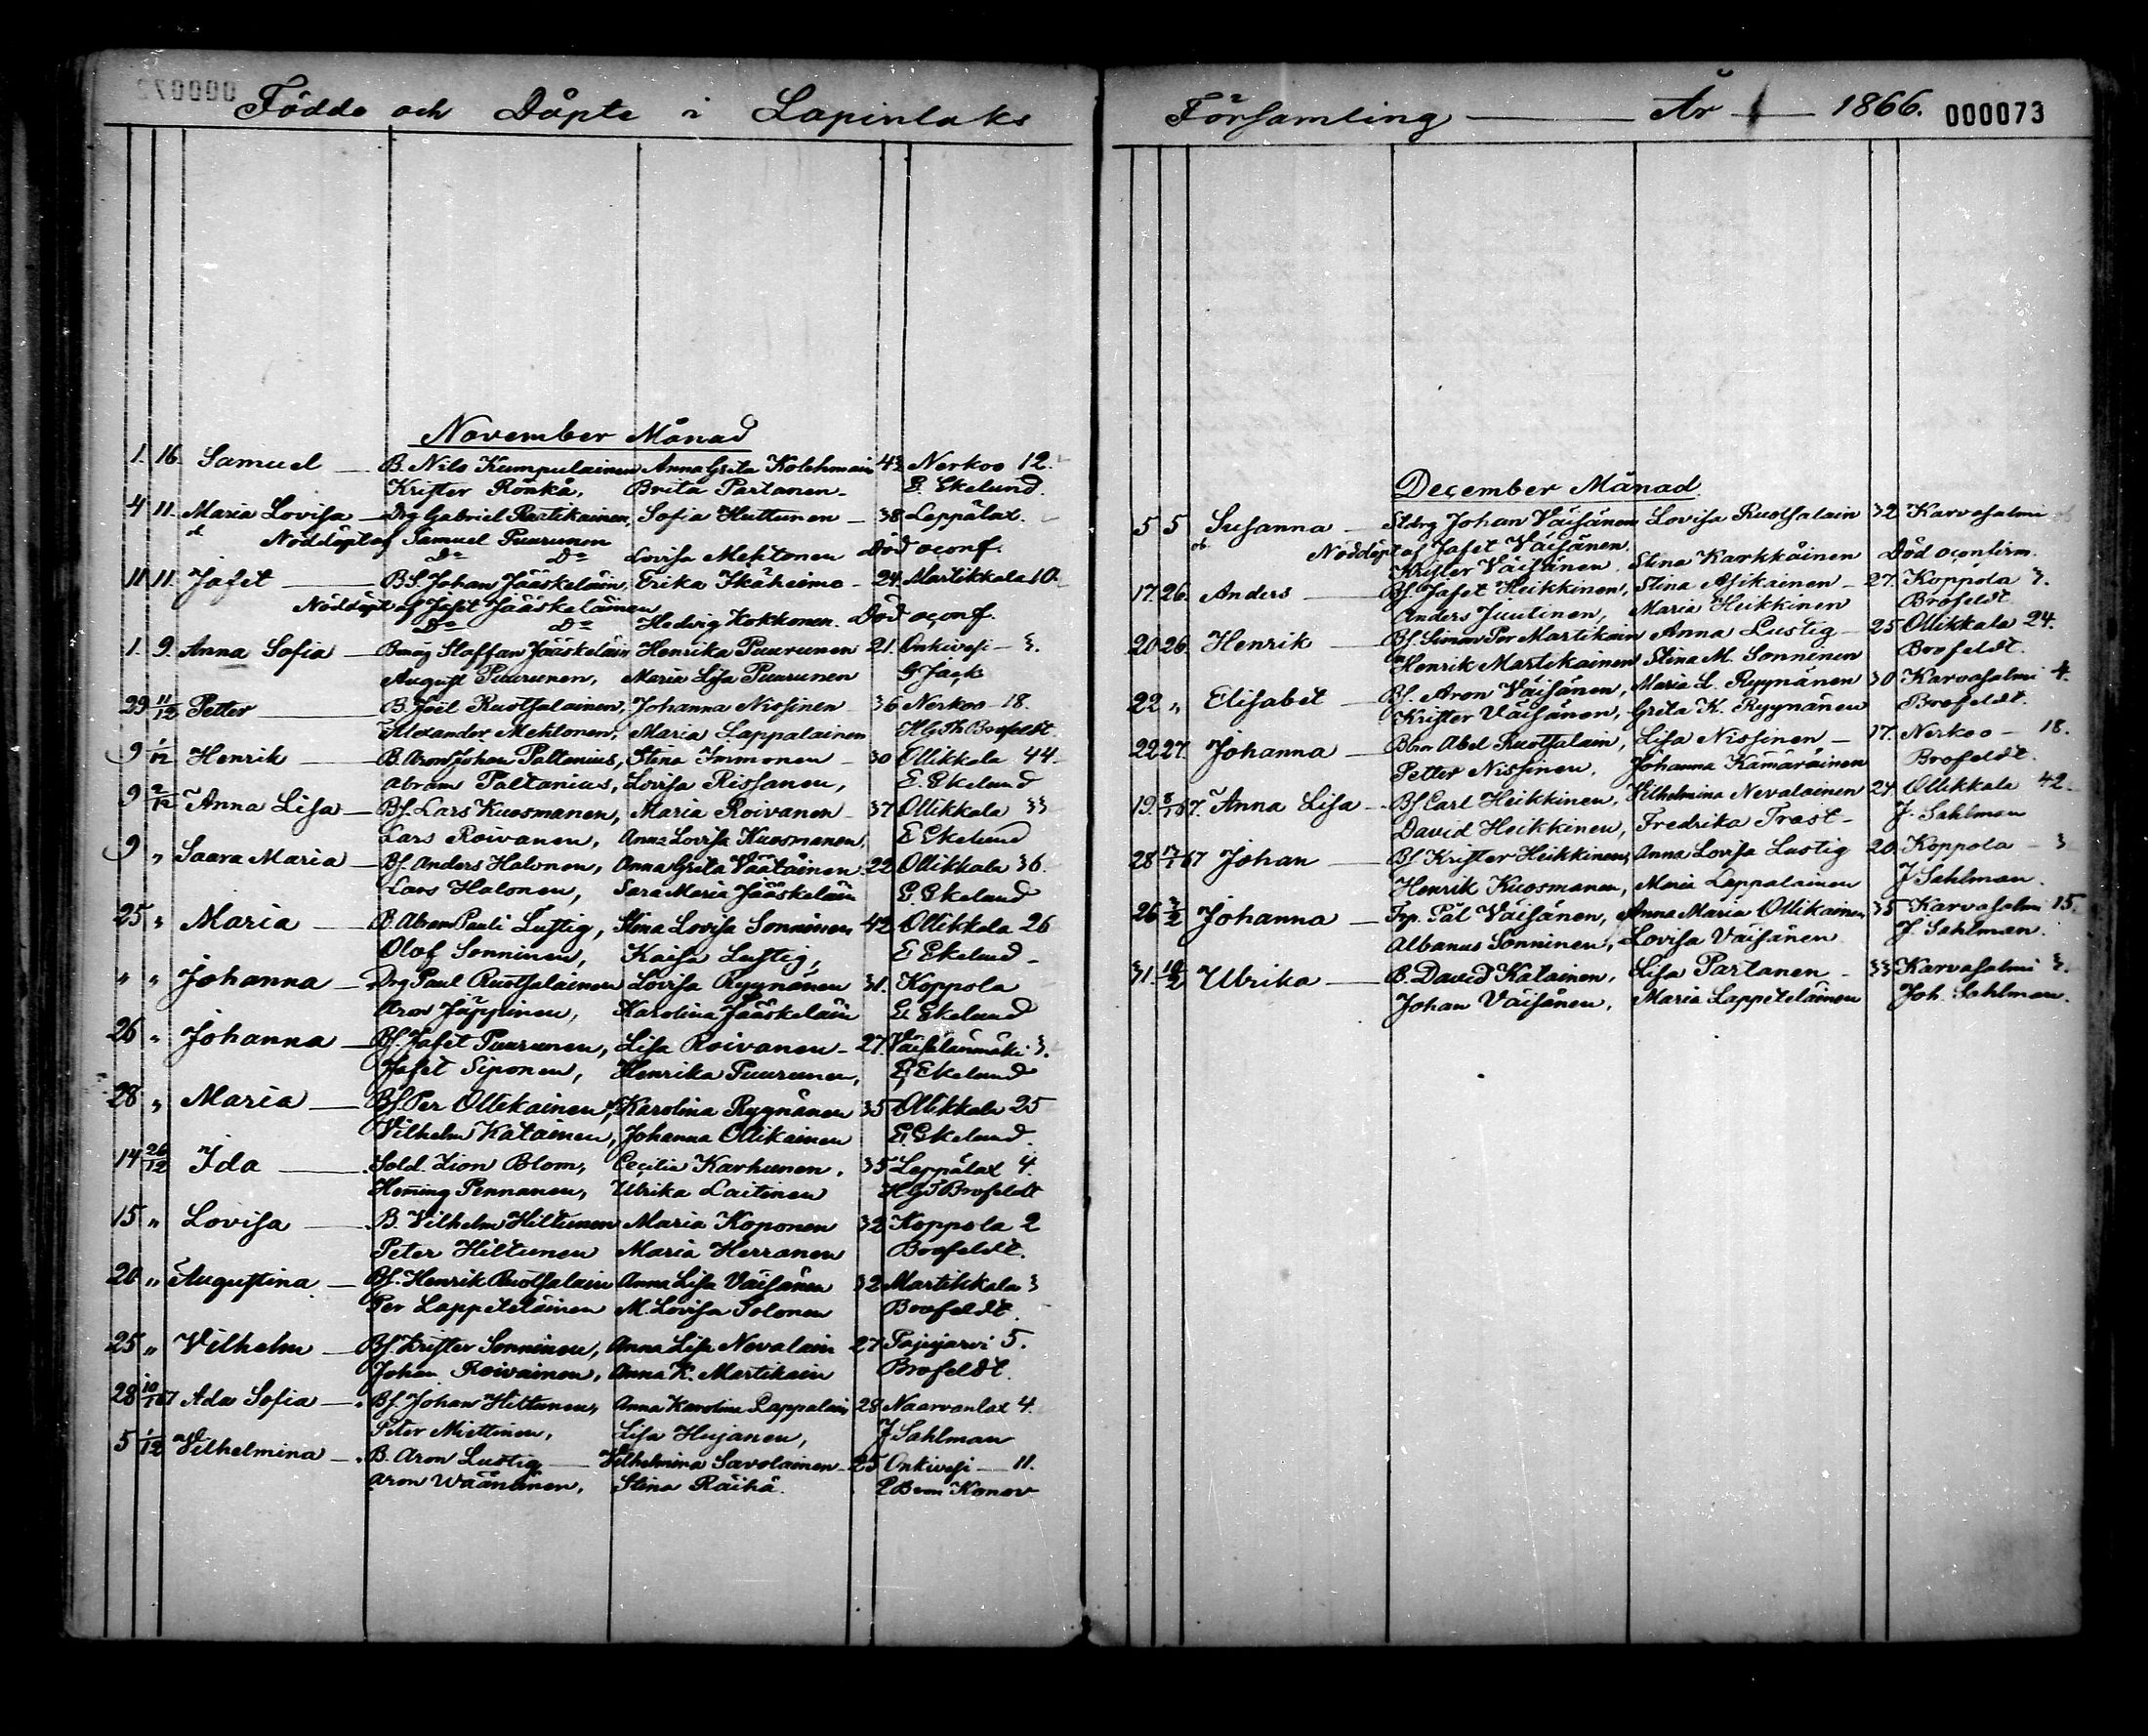 Födde och Döpte i Lapinlaks
November Månad
1. 16. Samuel — B. Nils Kumpulainen Anna Greta Kolehmain 43 Nerkoo 12.
Krister Rönkä, Brita Partanen — E. Ekelund.
4 11. Maria Lovisa — Drg Gabriel Partikainen, Sofia Huttunen — 38 Leppälax.
Nöddöpt af Samuel Puurunen
Do Do Lovisa Mehtonen Död oconf.
11 11. Jafet — BS. Johan Jääskeläin, Erika Ikäheimo — 24. Martikkala 10.
Nöddöpt af Jafet Jääskeläinen
Do Do Hedvig Kokkonen. Död oconf.
1. 9. Anna Sofia — Bmåg Staffan Jääskeläin Henrika Puurunen 21. Onkivesi — 3.
August Puurunen, Maria Lisa Puurunen G Jack
29 11/12 Petter — B. Joël Ruotsalainen, Johanna Nissinen 36 Nerkoo 18.
Alexander Mehtonen, Maria Lappalainen H G Th Brofeldt.
9 1/12 Henrik — B. Aron Johan Paltanius, Stina Immonen — 30 Ollikkala 44.
Abram Paltanius, Lovisa Rissanen, E. Ekelund
9 2/12 Anna Lisa — Bf. Lars Kuosmanen, Maria Roivanen 37 Ollikkala 33
Lars Roivanen, Anna Lovisa Kuosmanen, E Ekelund
9 " Saara Maria — Bf. Anders Halonen, Anna Greta Väätäinen 22 Ollikkala 36.
Lars Halonen, Sara Maria Jääskeläin E. Ekelund
25 " Maria — B. Abram Pauli Lustig, Stina Lovisa Sonninen 42 Ollikkala 26
Olof Sonninen, Kaisa Lustig, E Ekelund —
" " Johanna — Drg Paul Ruotsalainen Lovisa Ryynänen 31. Koppola
Aron Jäppinen, Karolina Jääskeläin E. Ekelund
26 " Johanna — Bf. Jafet Puurunen, Lisa Roivanen — 27. Väisälänmäki 3.
Jafet Siponen, Henrika Puurunen, E. Ekelund
28 " Maria — Bf. Per Ollikainen, Karolina Ryynänen 35 Ollikkala 25
Vilhelm Katainen, Johanna Ollikainen E. Ekelund.
14 26/12 Ida — Sold. Zion Blom, Cecilia Karhunen. 35 Leppälax 4.
Heming Pennanen, Ulrika Laitinen H G T Brofeldt
15 " Lovisa — B. Vilhelm Hiltunen Maria Koponen 32 Koppola 2
Peter Hiltunen Maria Herranen Brofeldt.
20 " Augustina — Bf. Henrik Ruotsalain Anna Lisa Väisänen 32 Martikkala 3
Per Lappeteläinen M. Lovisa Tolonen Brofeldt.
25 " Vilhelm — Bf. Krister Sonninen, Anna Lisa Nevalain 27 Pajujärvi 5.
Johan Roivainen, Anna K. Martikain Brofeldt.
28 10/1 67 Ada Sofia — Bf. Johan Hiltunen, Anna Karolina Lappalain 28 Naarvanlax 4.
Peter Miettinen, Lisa Hujanen, J Sahlman
5 1/12 Vilhelmina — B. Aron Lustig — Vilhelmina Savolainen — 25 Onkivesi — 11.
Aron Wäänänen, Stina Räihä. Konov
Församling — År — 1866. 000073
December Månad
5 5 Susanna — Sldrg Johan Väisänen Lovisa Ruotsalain 32 Karvasalmi
Nöddöpt af Jafet Väisänen.
Krister Väisänen. Stina Karhkäinen Död oconfirm.
17. 26. Anders — Bf. Jafet Heikkinen, Stina Asikainen — 27. Koppola 3.
Anders Juutinen, Maria Heikkinen Brofeldt
20 26. Henrik — Bf. Simon Per Martikain Anna Lustig — 25 Ollikkala 24.
Henrik Martikainen Stina M. Sonninen Brofeldt.
22 " Elisabet — Bf. Aron Väisänen, Maria L. Ryynänen 30 Karvasalmi 4.
Krister Väisänen, Greta K. Ryynänen Brofeldt.
22 27. Johanna — Bbm Abel Ruotsalain, Lisa Nissinen — 17. Nerkoo — 18.
Petter Nissinen, Johanna Kämäräinen Brofeldt.
19. 8/1 67. Anna Lisa — Bf Carl Heikkinen, Vilhelmina Nevalainen 24. Ollikkala 42.
David Heikkinen, Fredrika Trast — J. Sahlman
28 17/1 67 Johan — Bf Krister Heikkinen, Anna Lovisa Lustig 20. Koppola — 3
Henrik Kuosmanen, Maria Lappalainen J Sahlman.
26 2/2 Johanna — Trp. Pål Väisänen, Anna Maria Ollikainen 35 Karvasalmi 15.
Albanus Sonninen, Lovisa Väisänen J. Sahlman.
31. 10/2 Ulrika — B. David Katainen, Lisa Partanen — 33 Karvasalmi 3.
Johan Väisänen, Maria Lappeteläinen Joh. Sahlman.